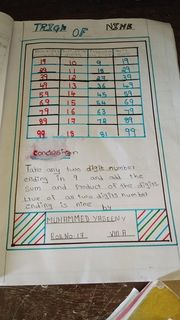 TRICK OF NINE
19 10 9 19
29 11 18 29
39 12 27 39
49 13 36 49
59 14 45 59
69 15 54 69
79 16 63 79
89 17 72 89
99 18 81 99
Conclusion
Take any two digit number
ending in 9 and add the
sum and product of the digits
ending is nine by
MUHAMMED YASEEN V
Roll No: 17 VIII A